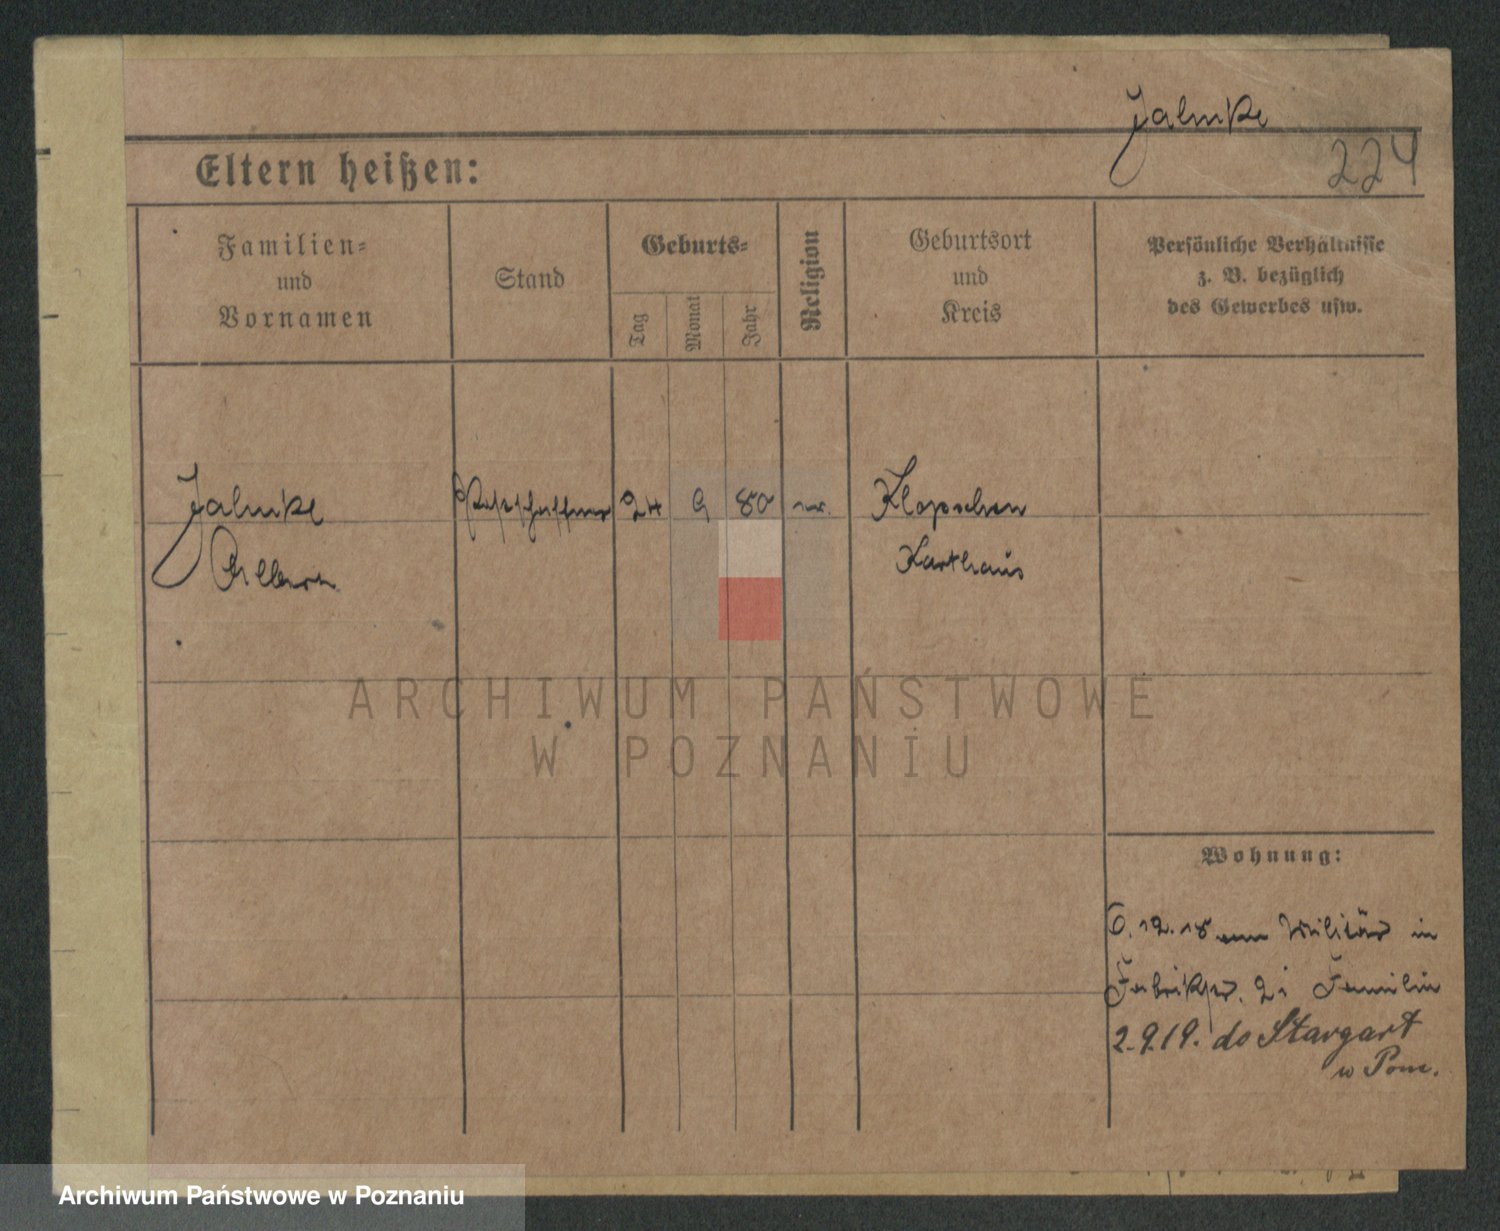 Jahnke
224
Eltern heißen:
Familien-
und
Vornamen
Stand
Geburts-
Tag
Monat
Jahr
Religion
Geburtsort
und
Kreis
Persönliche Verhältnisse
z. B. bezüglich
des Gewerbes usw.
Jahnke Postschaffner 24 9 80 ev. Klopschen
Albert Karthaus
ARCHIWUM PAŃSTWOWE
W POZNANIU
Wohnung:
6. 12. 18 vom Militär in
Fabrikstr. 2 i Familie
2.9.19. do Stargart
w Pom.
Archiwum Państwowe w Poznaniu